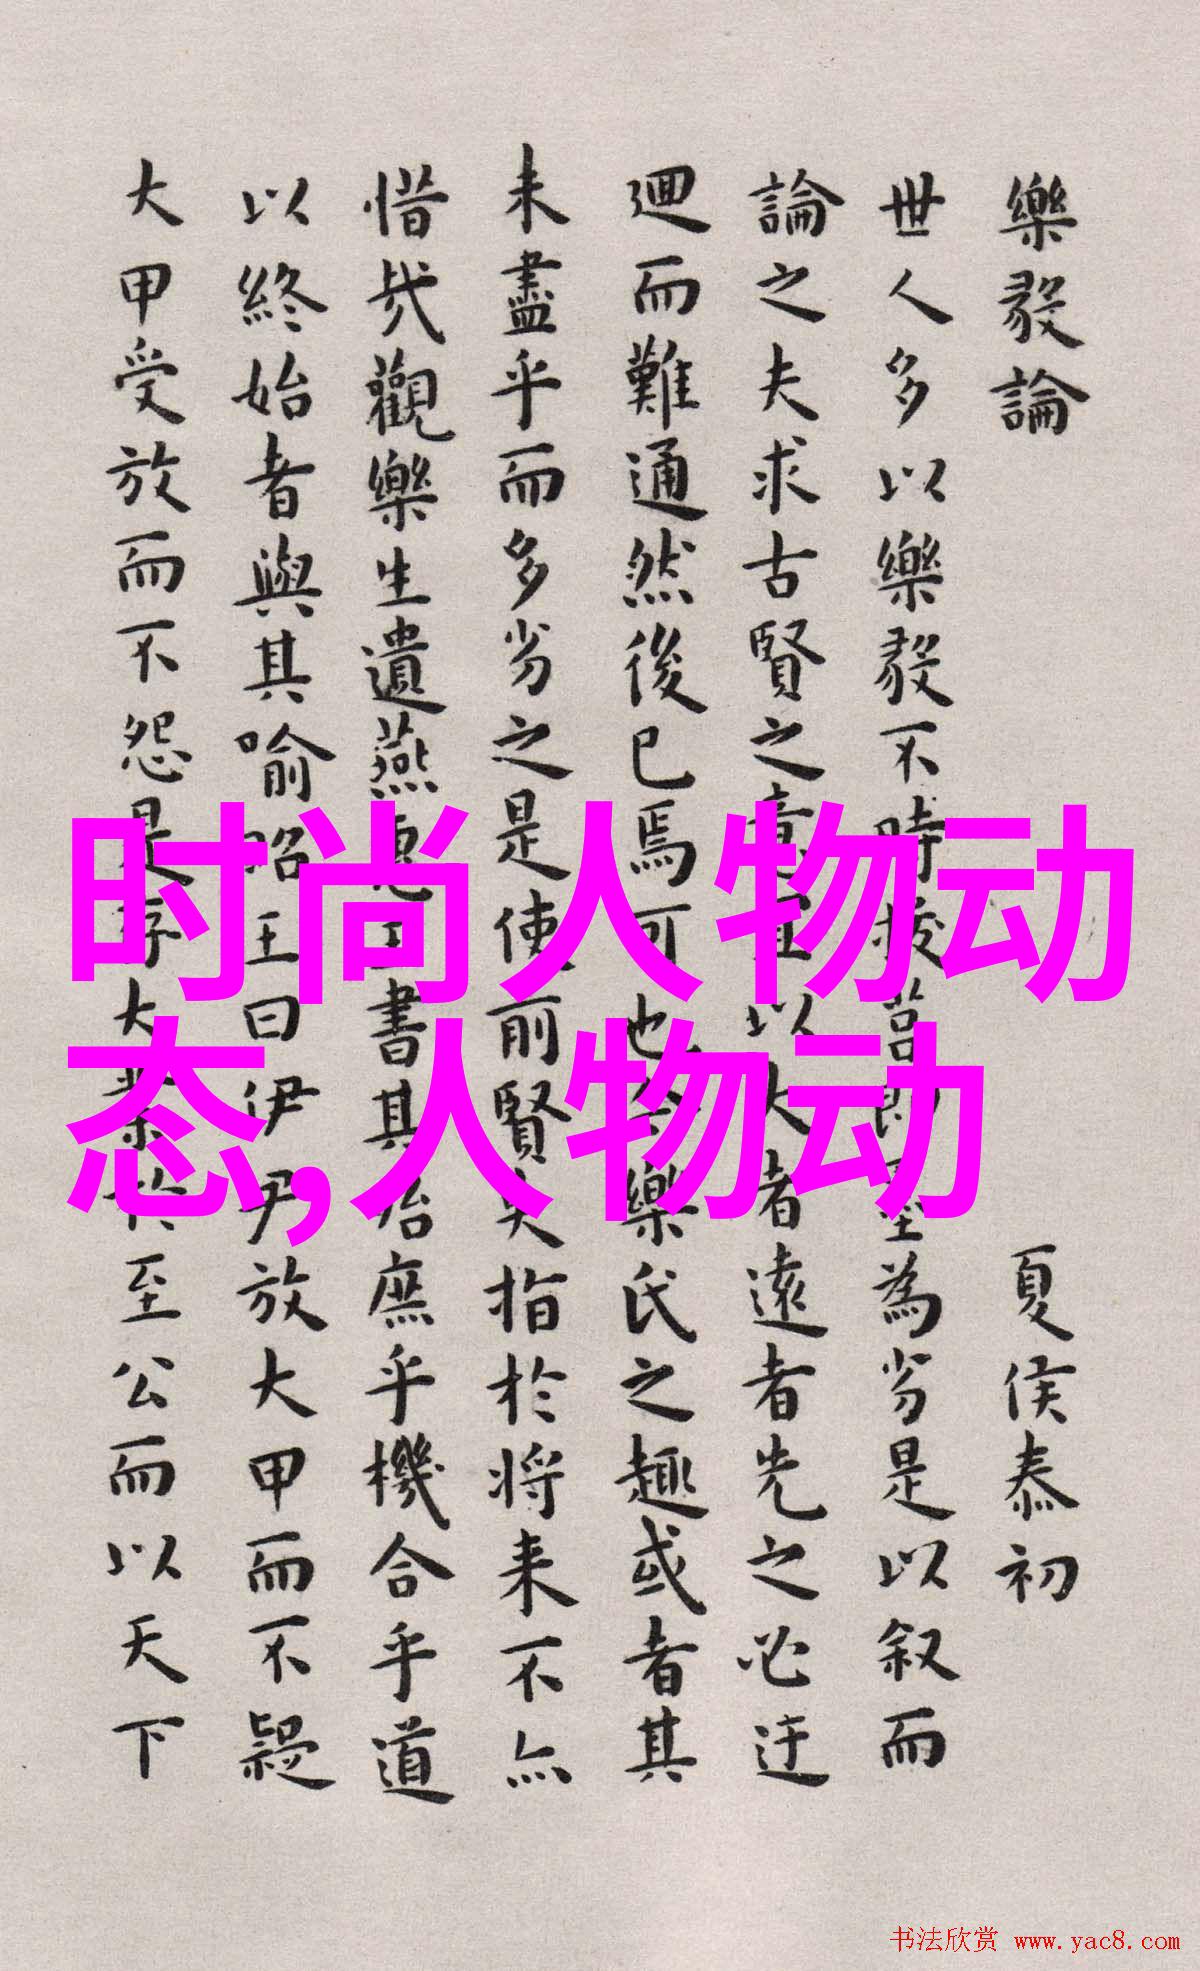 樂毅論 夏侯泰初
世人多以樂毅不時拔莒即墨為劣是以叙而
論之夫求古賢之意宜以大者遠者先之必迂
迴而難通然後已焉可也今樂氏之趣或者其
未盡乎而多劣之是使前賢失指於將来不亦
惜哉觀樂生遺燕惠王書其殆庶乎機合乎道
以終始者與其喻昭王曰伊尹放大甲而不疑
大甲受放而不怨是存大業於至公而以天下
时尚人物动
态,人物动
书法欣赏 www.yac8.com